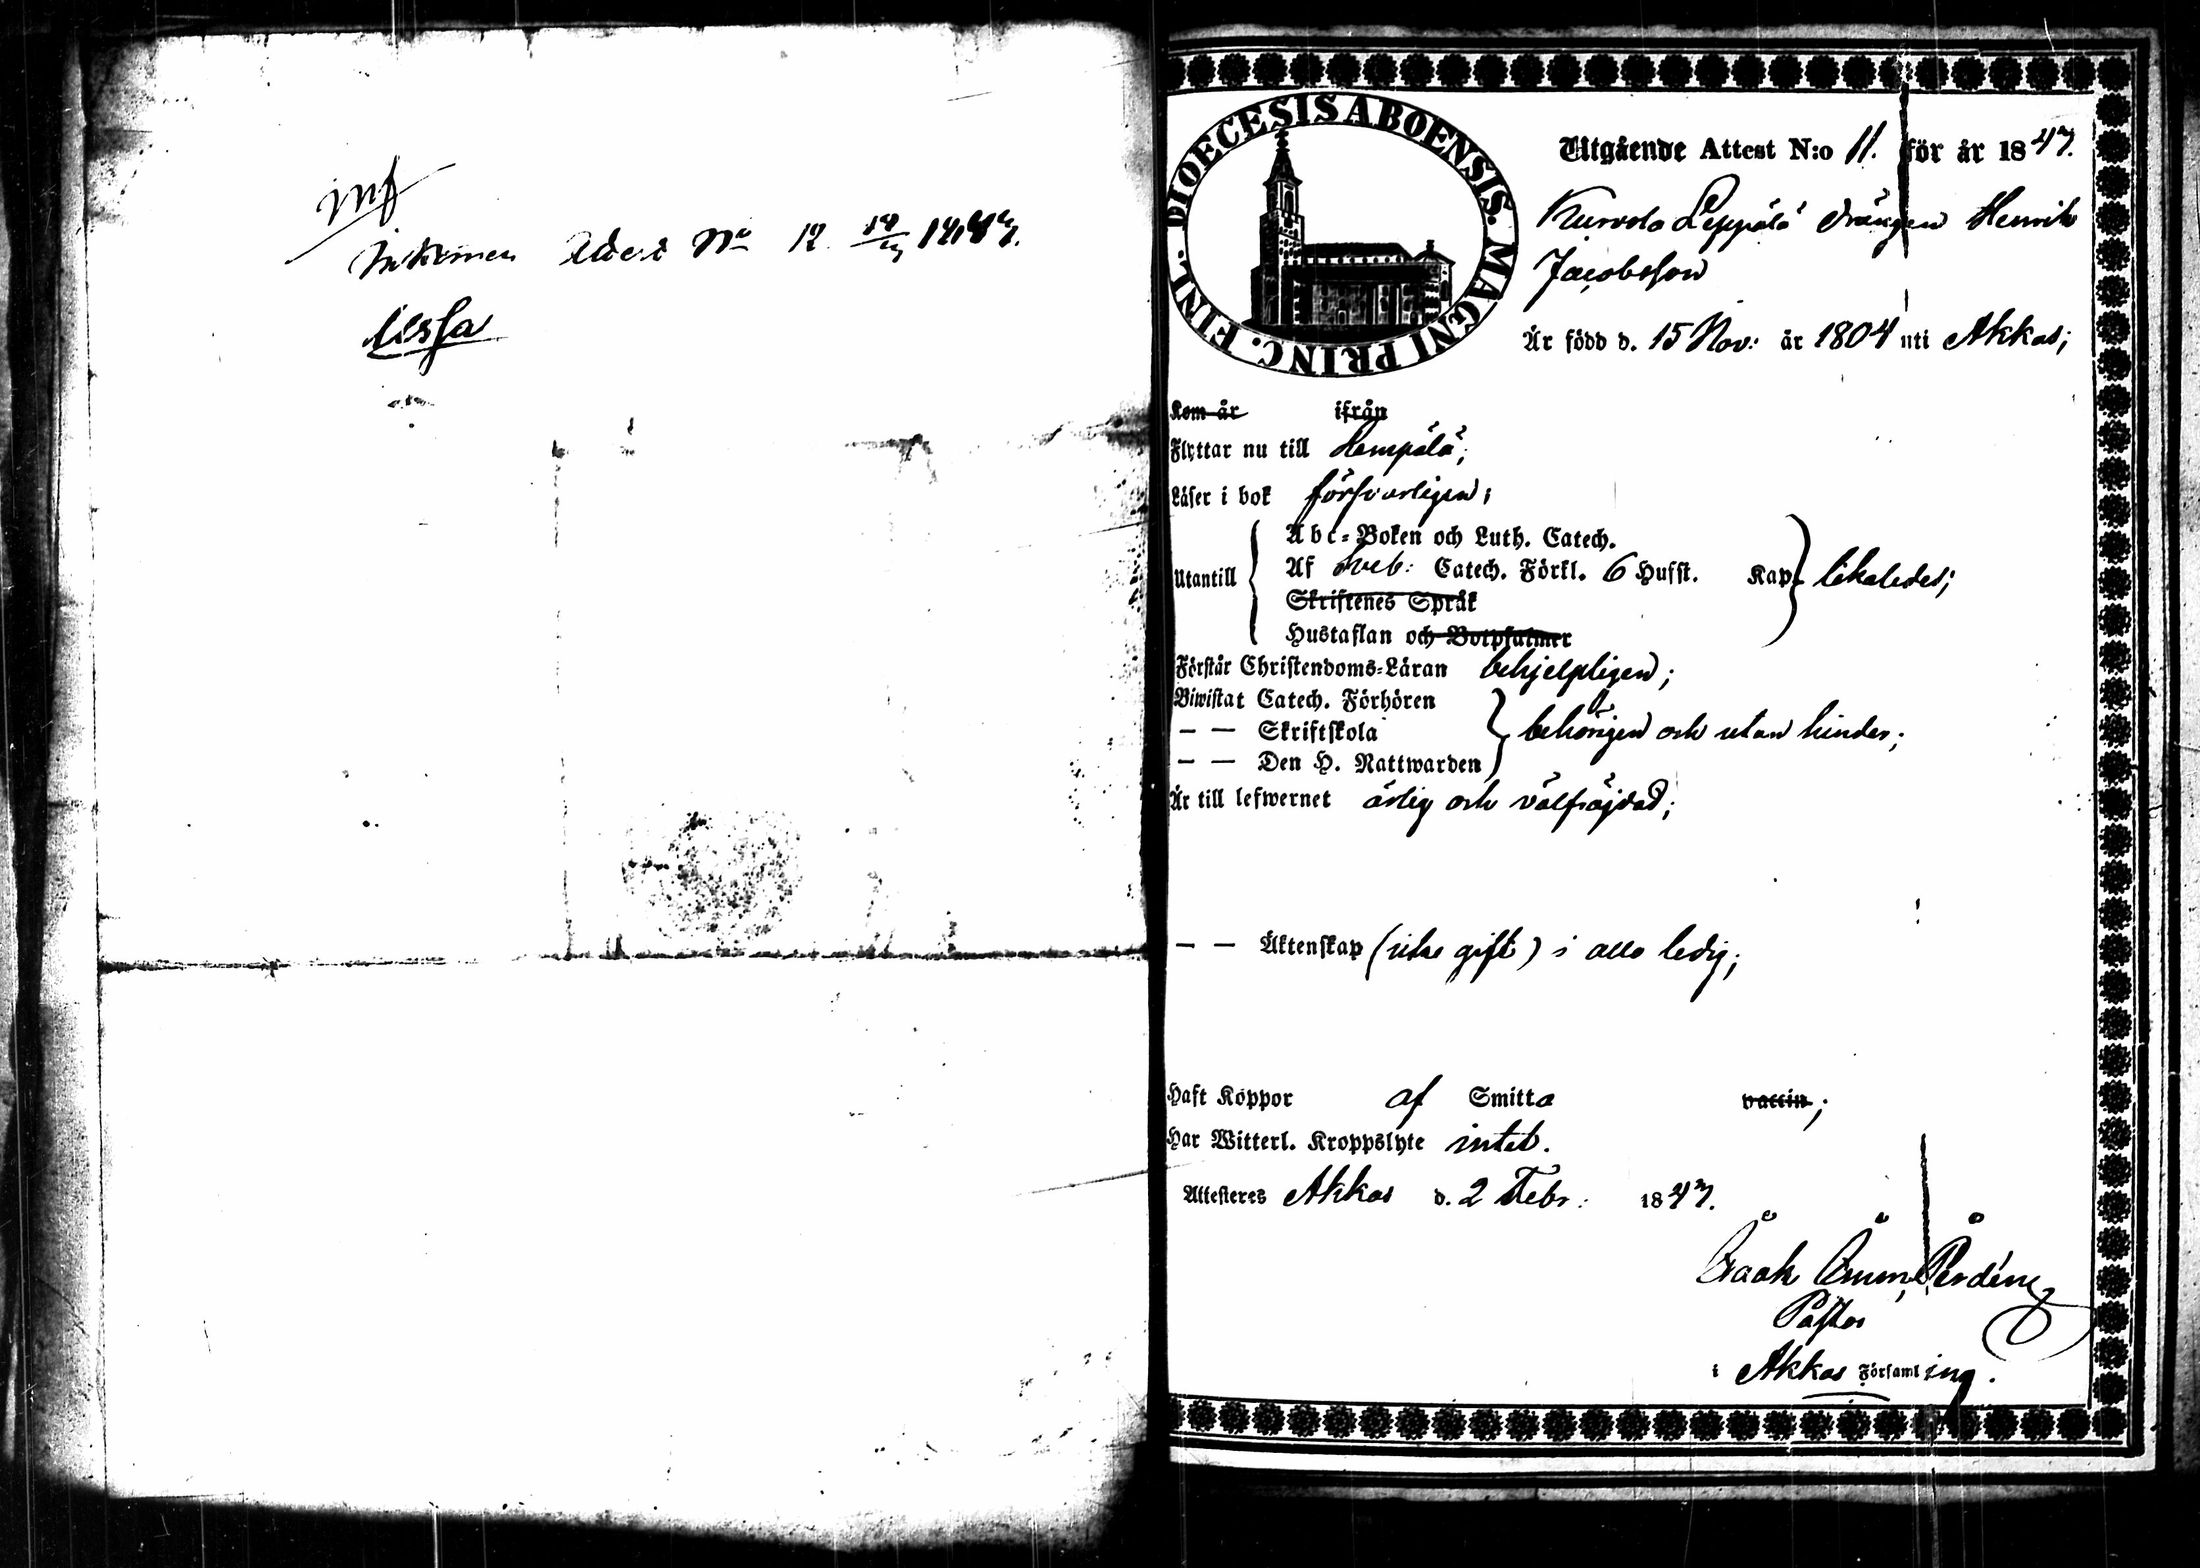 inf
Inkommen Attest No 12. 1847.
DIOECESIS ABOENSIS. MAGNI PRINC. FINL.
Utgående Attest N:o 11. för år 1847.
Kurvola Leppälä drängen Henrik
Jacobsson
Är född d. 15 Nov: år 1804 uti Akkas;
Kom år ifrån
Flyttar nu till Lempälä;
Läser i bok försvarligen;
Abc-Boken och Luth. Catech.
Utantill Af Sveb: Catech. Förkl. 6 Hufst. Kap. likaledes;
Skriftenes Språk
Hustaflan och Botpsalmer
Förstår Christendoms-Läran behjelpligen;
Biwistat Catech. Förhören
— — Skriftskola behörigen och utan hinder;
— — Den H. Nattwarden
Är till lefwernet ärlig och välfräjdad;
— — Äktenskap (icke gift) i allo ledig;
Haft Koppor af Smitta vaccin;
Har Witterl. Kroppslyte intet.
Attesteras Akkas d. 2 Febr: 1847.
Pastor
i Akkas Församling.